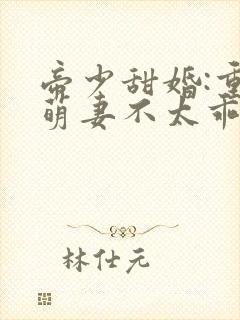 帝少甜婚:重
萌妻不太乖
林仕元